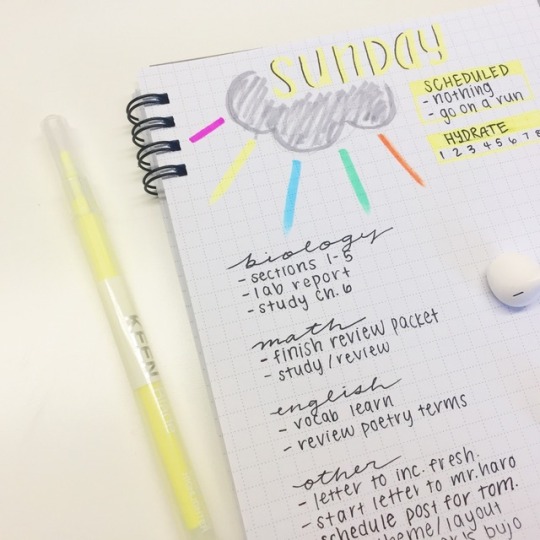 sunday
SCHEDULED
- nothing
- go on a run
HYDRATE
1 2 3 4 5 6 7 8
biology
- sections 1-5
- lab report
- study ch. 6
math
- finish review packet
- study/review
english
- vocab learn
- review poetry terms
other
- letter to inc. fresh.
- start letter to mr. haro
schedule post for tom.
theme/layout
bujo
KEEN